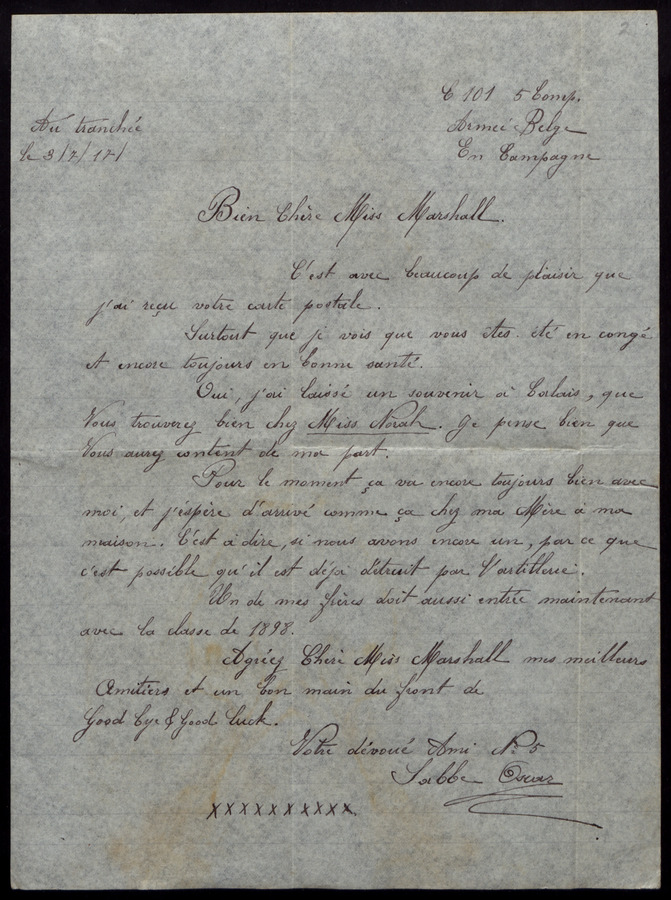 2
C 101 5 Comp.
Au tranchée
Armée Belge
le 3/7/17/
En Campagne
Bien Chère Miss Marshall.
C'est avec beaucoup de plaisir que
j'ai reçu votre carte postale.
Surtout que je vois que vous êtes été en congé
et encore toujours en bonne santé.
Oui, j'ai laissé un souvenir à Calais, que
Vous trouverez bien chez Miss Norah. Je pense bien que
Vous aurez content de ma part.
Pour le moment ça va encore toujours bien avec
moi, et j'éspère d'arrivé comme ça chez ma Mère à ma
maison. C'est à dire, si nous avons encore un, par ce que
c'est possible qu'il est déjà détruit par l'artillerie.
Un de mes frères doit aussi entrée maintenant
avec la classe de 1898.
Agréez Chère Miss Marshall mes meilleurs
Amitiers et un bon main du front de
Good bye & Good luck.
Votre dévoué Ami No 5
Sabbe Oscar
xxxxxxxxxx